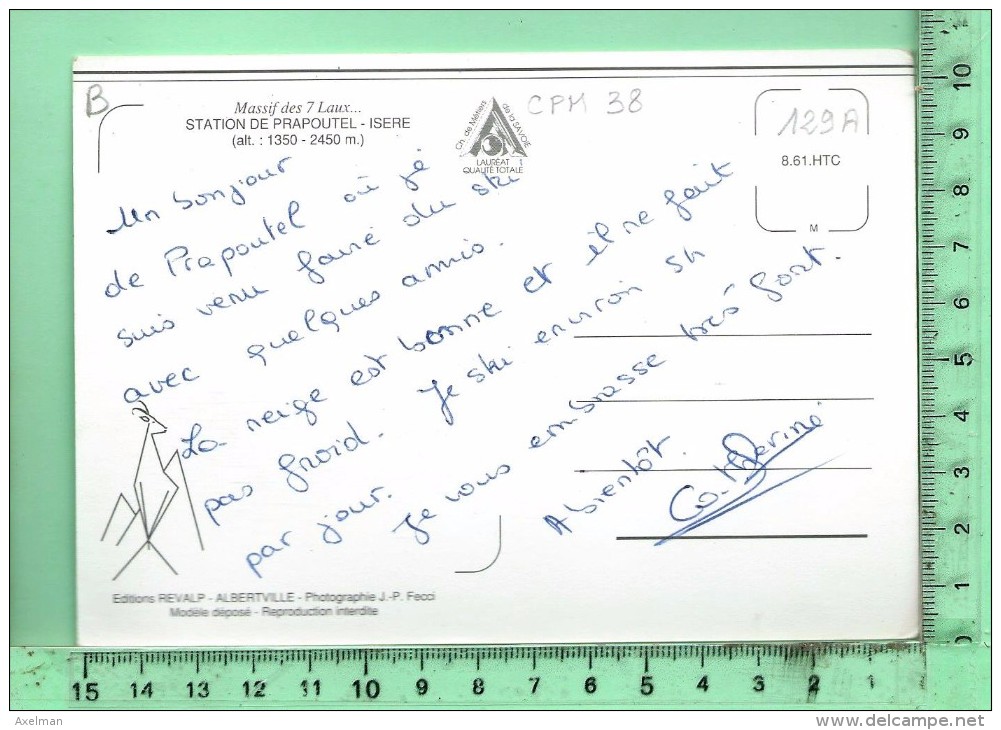 B
Massif des 7 Laux...
STATION DE PRAPOUTEL - ISERE
(alt. : 1350 - 2450 m.)
Ch. de Métiers de la SAVOIE
LAURÉAT 1
QUALITÉ TOTALE
CPM 38
129A
8.61.HTC
M
Un bonjour
de Prapoutel où je
suis venu faire du ski
avec quelques amis.
La neige est bonne et il ne fait
pas froid. Je ski environ 5h
par jour.
Je vous embrasse très fort.
A bientôt.
Catherine
Editions REVALP - ALBERTVILLE - Photographie J.-P. Fecci
Modèle déposé - Reproduction interdite
10
9
8
7
6
5
4
3
2
1
0
15 14 13 12 11 10 9 8 7 6 5 4 3 2 1
Axelman
delcampe.net